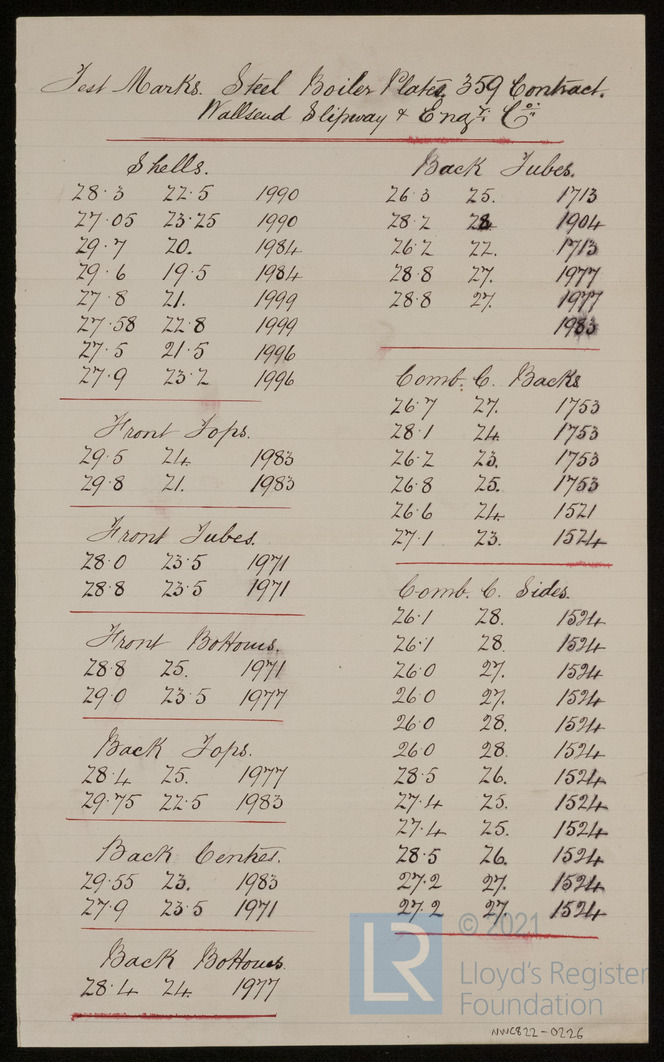 Test Marks. Steel Boiler Plates, 359 Contract.
Wallsend Slipway & Engr. Co.
Shells.
28·3 22·5 1990
27·05 23·25 1990
29·7 20. 1984
29·6 19·5 1984
27·8 21. 1999
27·58 22·8 1999
27·5 21·5 1996
27·9 23·2 1996
Front Tops.
29·5 24. 1983
29·8 21. 1983
Front Tubes.
28·0 23·5 1971
28·8 23·5 1971
Front Bottoms.
28·8 25. 1971
29·0 23·5 1977
Back Tops.
28·4 25. 1977
29·75 22·5 1983
Back Centres.
29·55 23. 1983
27·9 23·5 1971
Back Bottoms.
28·4 24. 1977
Back Tubes.
26·3 25. 1713
28·2 28 1904
26·2 22. 1713
28·8 27. 1977
28·8 27. 1977
1983
Comb. C. Backs
26·7 27. 1753
28·1 24. 1753
26·2 23. 1753
26·8 25. 1753
26·6 24. 1521
27·1 23. 1524
Comb. C. Sides.
26·1 28. 1524
26·1 28. 1524
26·0 27. 1524
26·0 27. 1524
26·0 28. 1524
26·0 28. 1524
28·5 26. 1524
27·4 25. 1524
27·4 25. 1524
28·5 26. 1524
27·2 27. 1524
27·2 27. 1524
LR © 2021
Lloyd's Register
Foundation
NWC822-0226